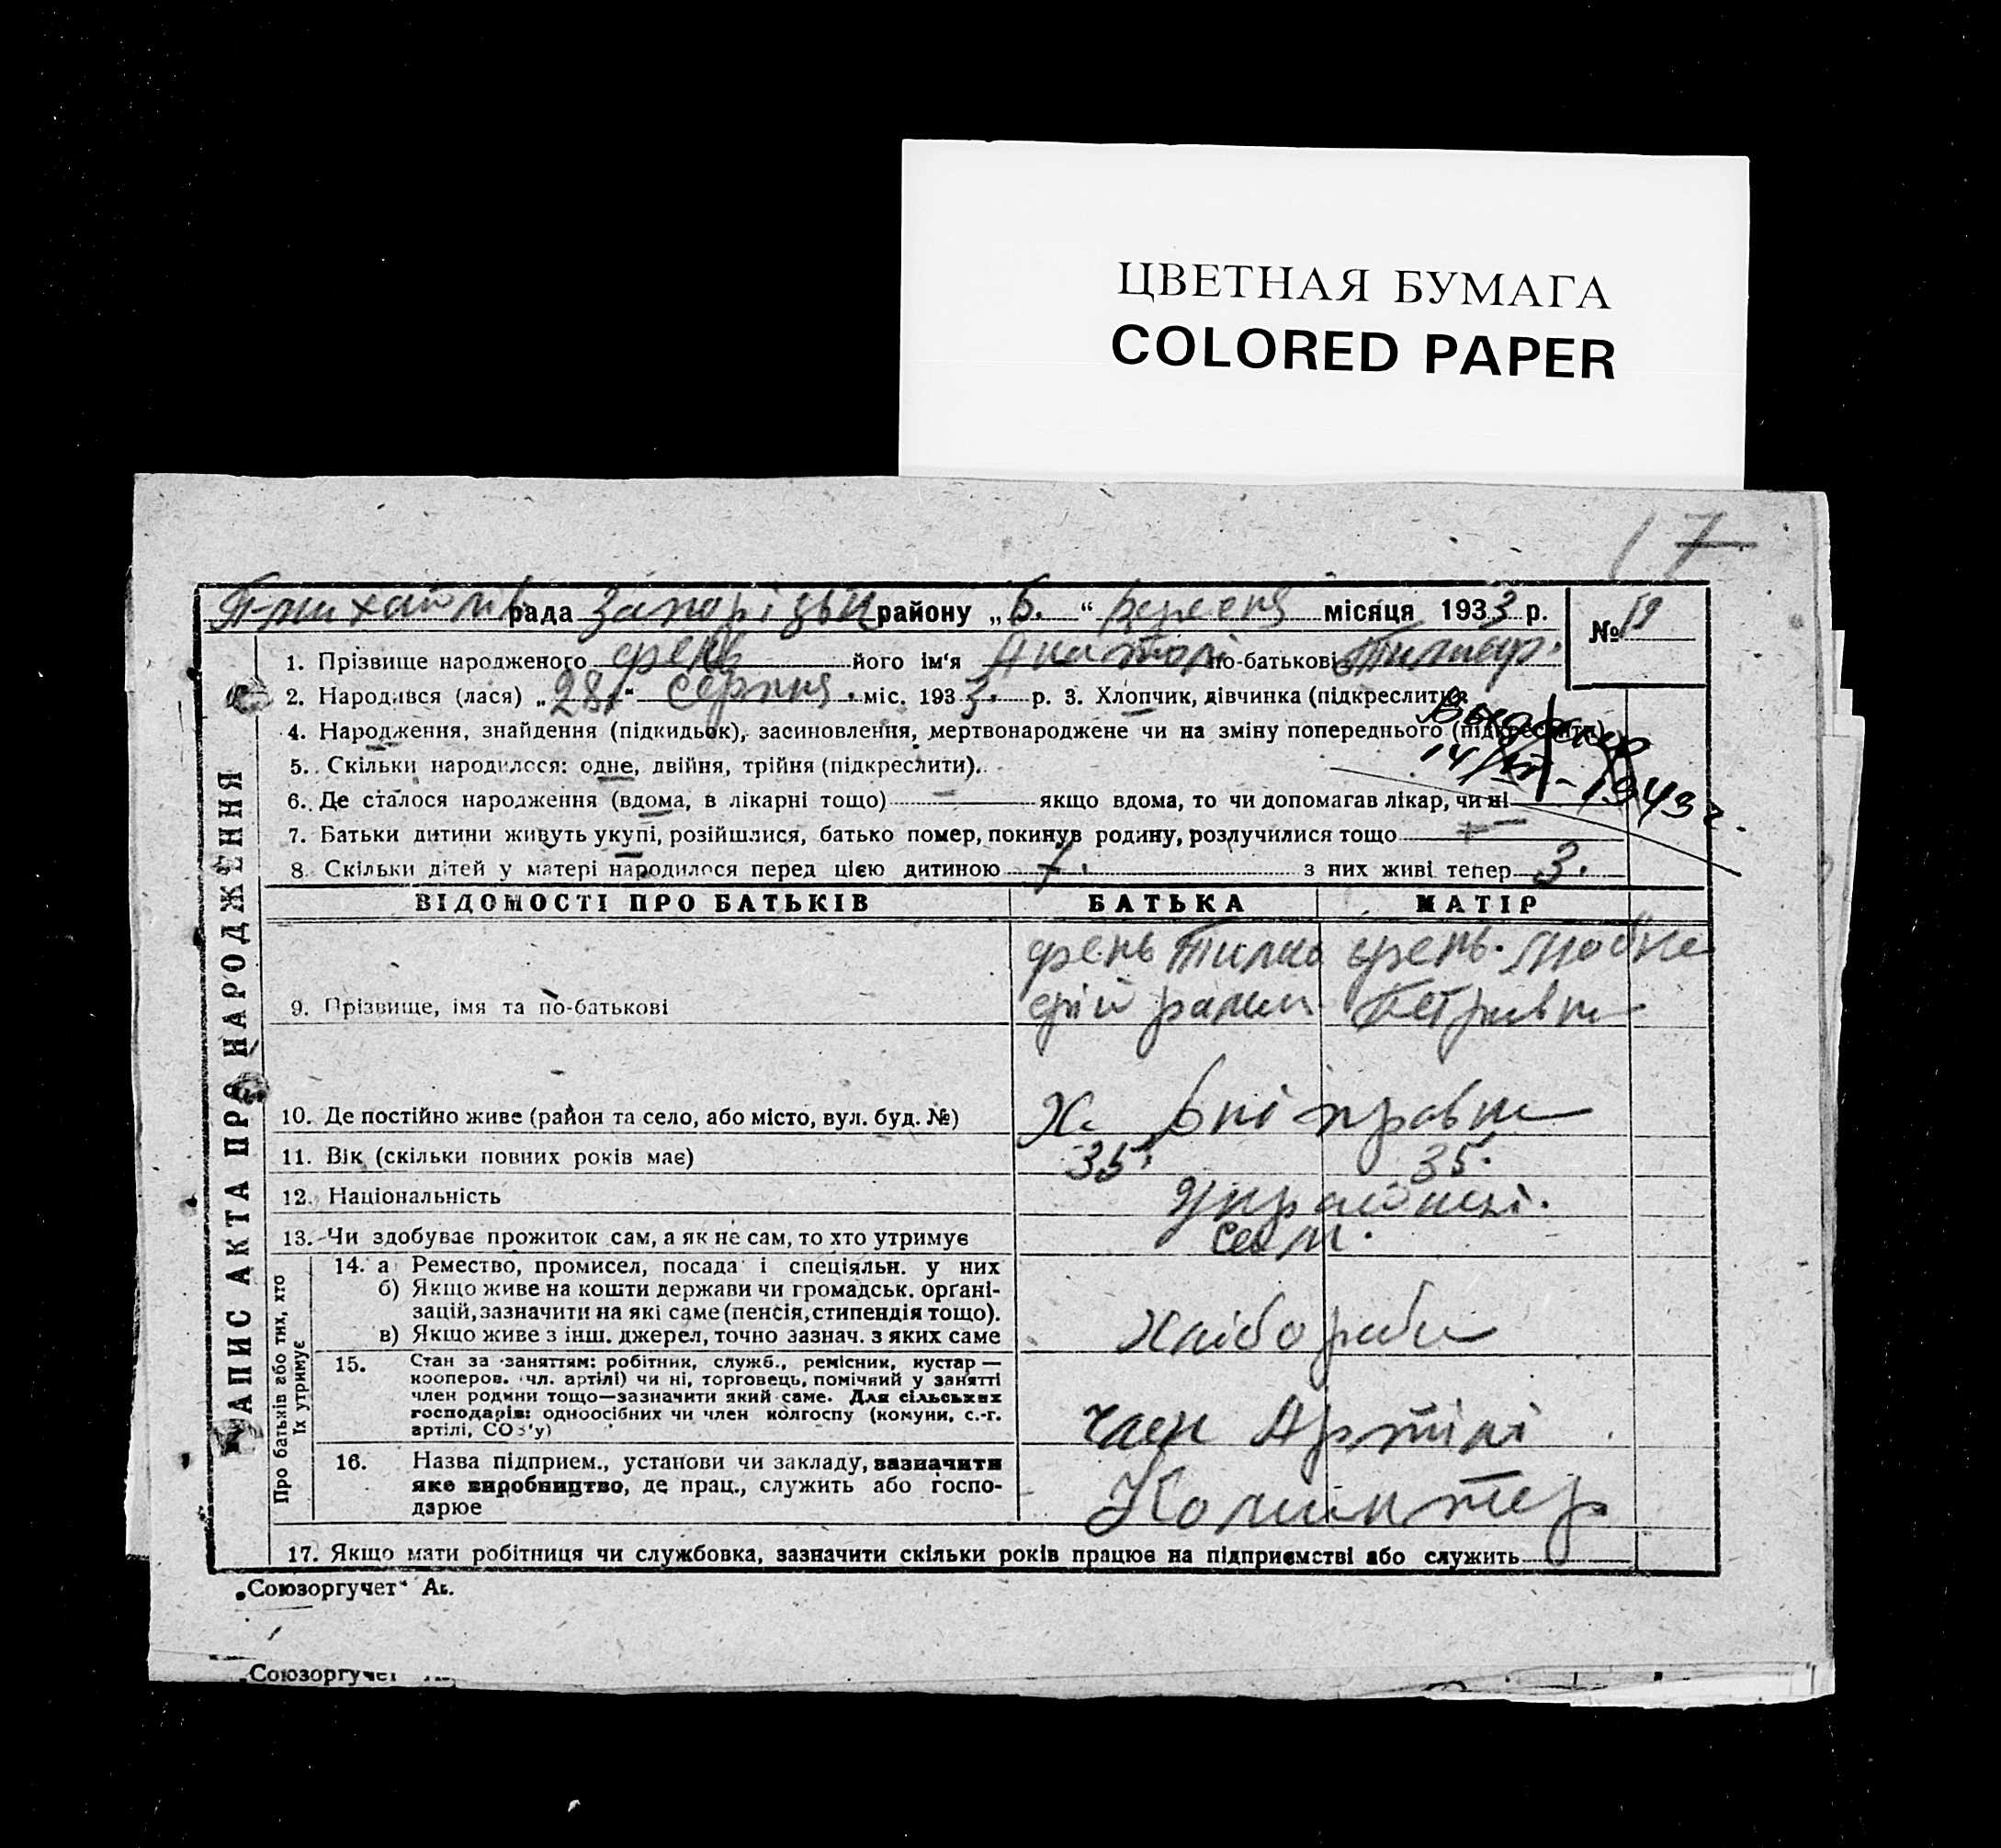 ЦВЕТНАЯ БУМАГА
COLORED PAPER
17
рада району „ 6. “ Вересня місяця 1933 р.
№ 19
1. Прізвище народженого Фень його ім'я Анатолі по-батькові
2. Народився (лася) „28.“ серпня міс. 1933. р. 3. Хлопчик, дівчинка (підкреслити).
4. Народження, знайдення (підкидьок), засиновлення, мертвонароджене чи на зміну попереднього (підкреслити)
14/VII-1943 г.
5. Скільки народилося: одне, двійня, трійня (підкреслити).
6. Де сталося народження (вдома, в лікарні тощо) якщо вдома, то чи допомагав лікар, чи ні
7. Батьки дитини живуть укупі, розійшлися, батько помер, покинув родину, розлучилися тощо
8. Скільки дітей у матері народилося перед цією дитиною 7. з них живі тепер 3.
ЗАПИС АКТА ПРО НАРОДЖЕННЯ
ВІДОМОСТІ ПРО БАТЬКІВ БАТЬКА МАТІР
9. Прізвище, імя та по-батькові Фень Фень Петривна
10. Де постійно живе (район та село, або місто, вул. буд. №) Х.
11. Вік (скільки повних років має) 35. 35.
12. Національність Українці.
13. Чи здобуває прожиток сам, а як не сам, то хто утримує сам.
Про батьків або тих, хто їх утримує
14. а Ремество, промисел, посада і спеціяльн. у них
б) Якщо живе на кошти держави чи громадськ. організацій, зазначити на які саме (пенсія, стипендія тощо).
в) Якщо живе з інш. джерел, точно зазнач. з яких саме Хлібороби
15. Стан за заняттям: робітник, служб., ремісник, кустар —
кооперов. чл. артілі) чи ні, торговець, помічний у занятті
член родини тощо—зазначити який саме. Для сільських
господарів: одноосібних чи член колгоспу (комуни, с.-г.
артілі, СОЗ'у) член Артілі
16. Назва підприєм., установи чи закладу, зазначити
яке виробництво, де прац., служить або господарює Комінтер
17. Якщо мати робітниця чи службовка, зазначити скільки років працює на підприємстві або служить
„Союзоргучет“
„Союзоргучет